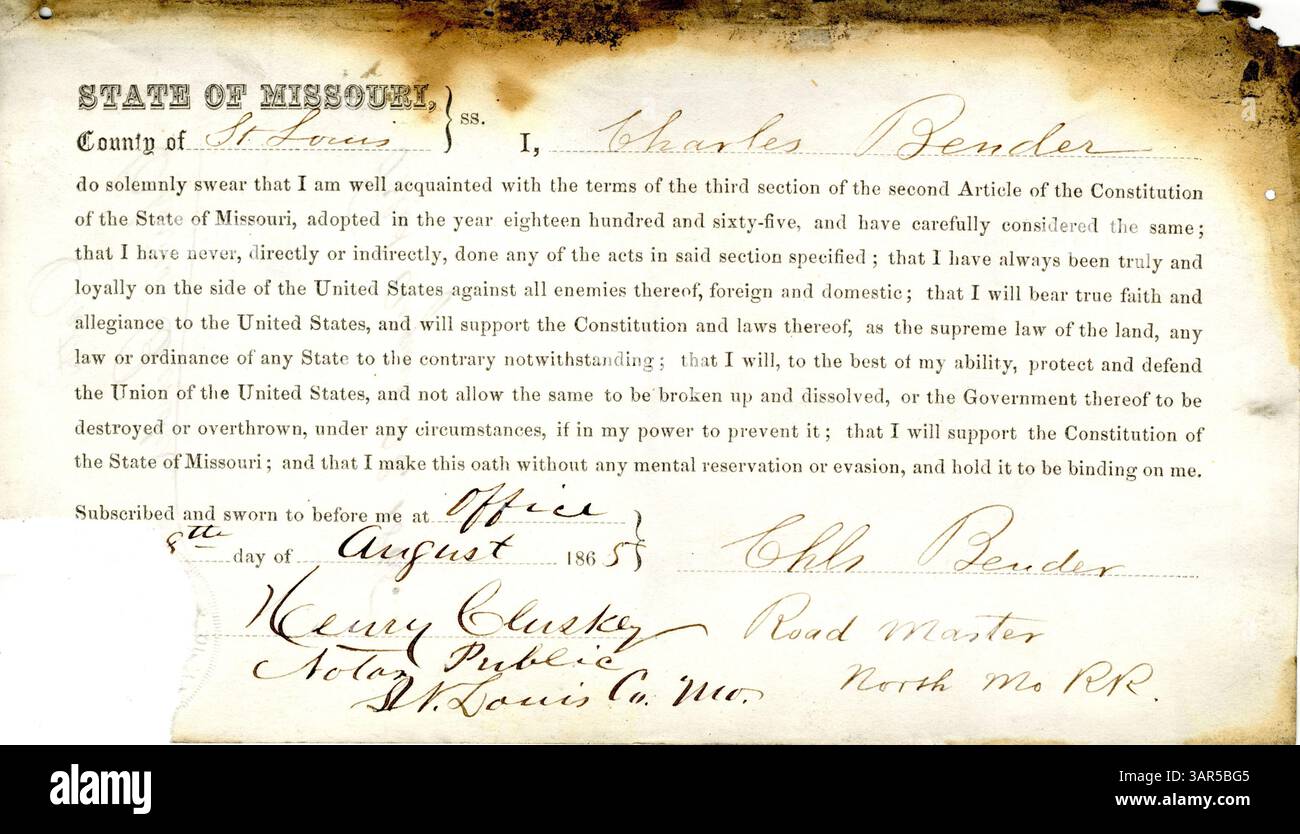 STATE OF MISSOURI,
County of St. Louis } ss. I, Charles Bender
do solemnly swear that I am well acquainted with the terms of the third section of the second Article of the Constitution
of the State of Missouri, adopted in the year eighteen hundred and sixty-five, and have carefully considered the same;
that I have never, directly or indirectly, done any of the acts in said section specified; that I have always been truly and
loyally on the side of the United States against all enemies thereof, foreign and domestic; that I will bear true faith and
allegiance to the United States, and will support the Constitution and laws thereof, as the supreme law of the land, any
law or ordinance of any State to the contrary notwithstanding; that I will, to the best of my ability, protect and defend
the Union of the United States, and not allow the same to be broken up and dissolved, or the Government thereof to be
destroyed or overthrown, under any circumstances, if in my power to prevent it; that I will support the Constitution of
the State of Missouri; and that I make this oath without any mental reservation or evasion, and hold it to be binding on me.
Subscribed and sworn to before me at Office
8th day of August 1865 } Chls Bender
Henry Cluskey Road Master
Notary Public North Mo RR.
St. Louis Co. Mo.
alamy
Image ID: 3AR5BG5
www.alamy.com